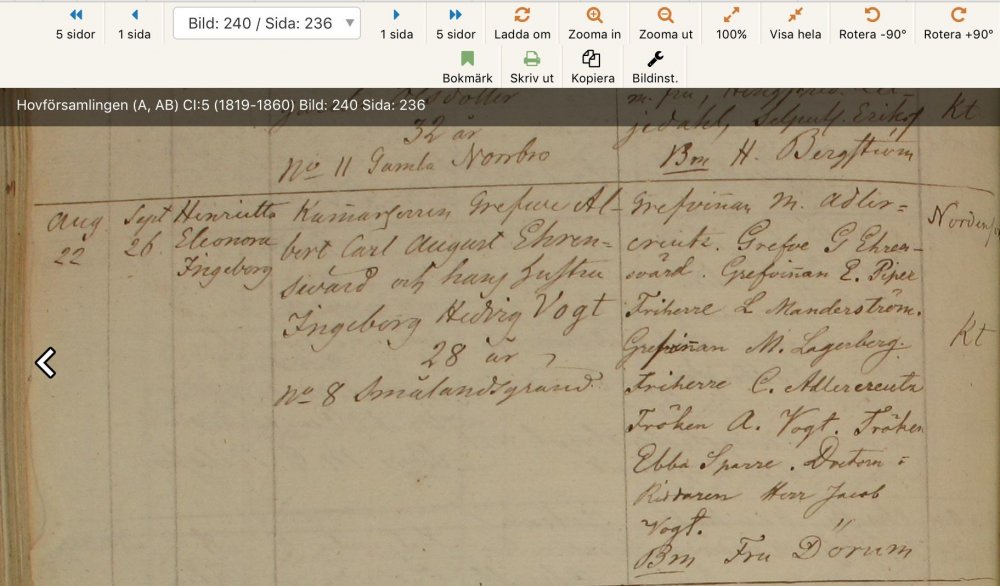 5 sidor
1 sida
Bild: 240 / Sida: 236
1 sida
5 sidor
Ladda om
Zooma in
Zooma ut
100%
Visa hela
Rotera -90°
Rotera +90°
Bokmärk
Skriv ut
Kopiera
Bildinst.
Hovförsamlingen (A, AB) CI:5 (1819-1860) Bild: 240 Sida: 236
32 år
No 11 Gamla Norrbro
Erikss
Bm H. Bergström
Kt
Aug
22
Sept
26
Henrietta
Eleonora
Ingeborg
Kam̄arherren Grefwe Al-
bert Carl August Ehren=
svärd och hans hustru
Ingeborg Hedvig Vogt
28 år
No 8 Smålandsgränd
Grefvin̄an M. Adler=
creutz. Grefve G Ehren-
svärd. Grefvin̄an E. Piper
Friherre L Manderström.
Grefvin̄an M. Lagerberg.
Friherre C. Adlercreutz
Fröken A. Vogt. Fröken
Ebba Sparre.
Riddaren Herr Jacob
Vogt.
Bm Fru Dörum
Kt